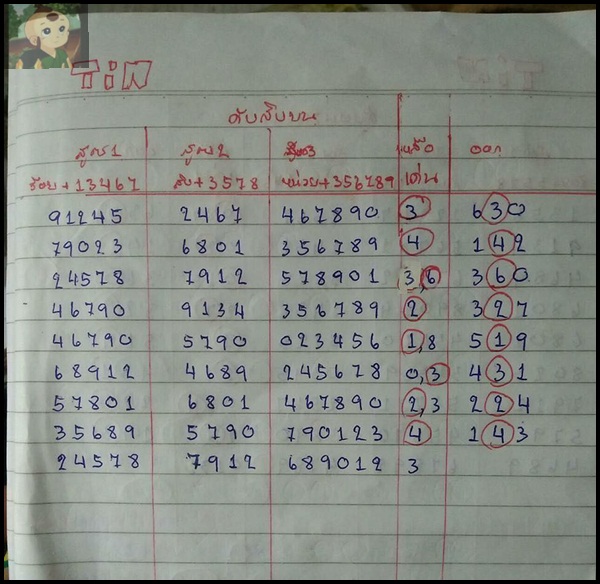 TiN
ดับสิบบน
สูตร1 สูตร2 สูตร3 เหลือ ออก
ร้อย+13467 สิบ+3578 หน่วย+356789 เด่น
91245 2467 467890 3 630
79023 6801 356789 4 142
24578 7912 578901 3,6 360
46790 9134 356789 2 327
46790 5790 023456 1,8 519
68912 4689 245678 0,3 431
57801 6801 467890 2,3 224
35689 5790 790123 4 143
24578 7912 689012 3